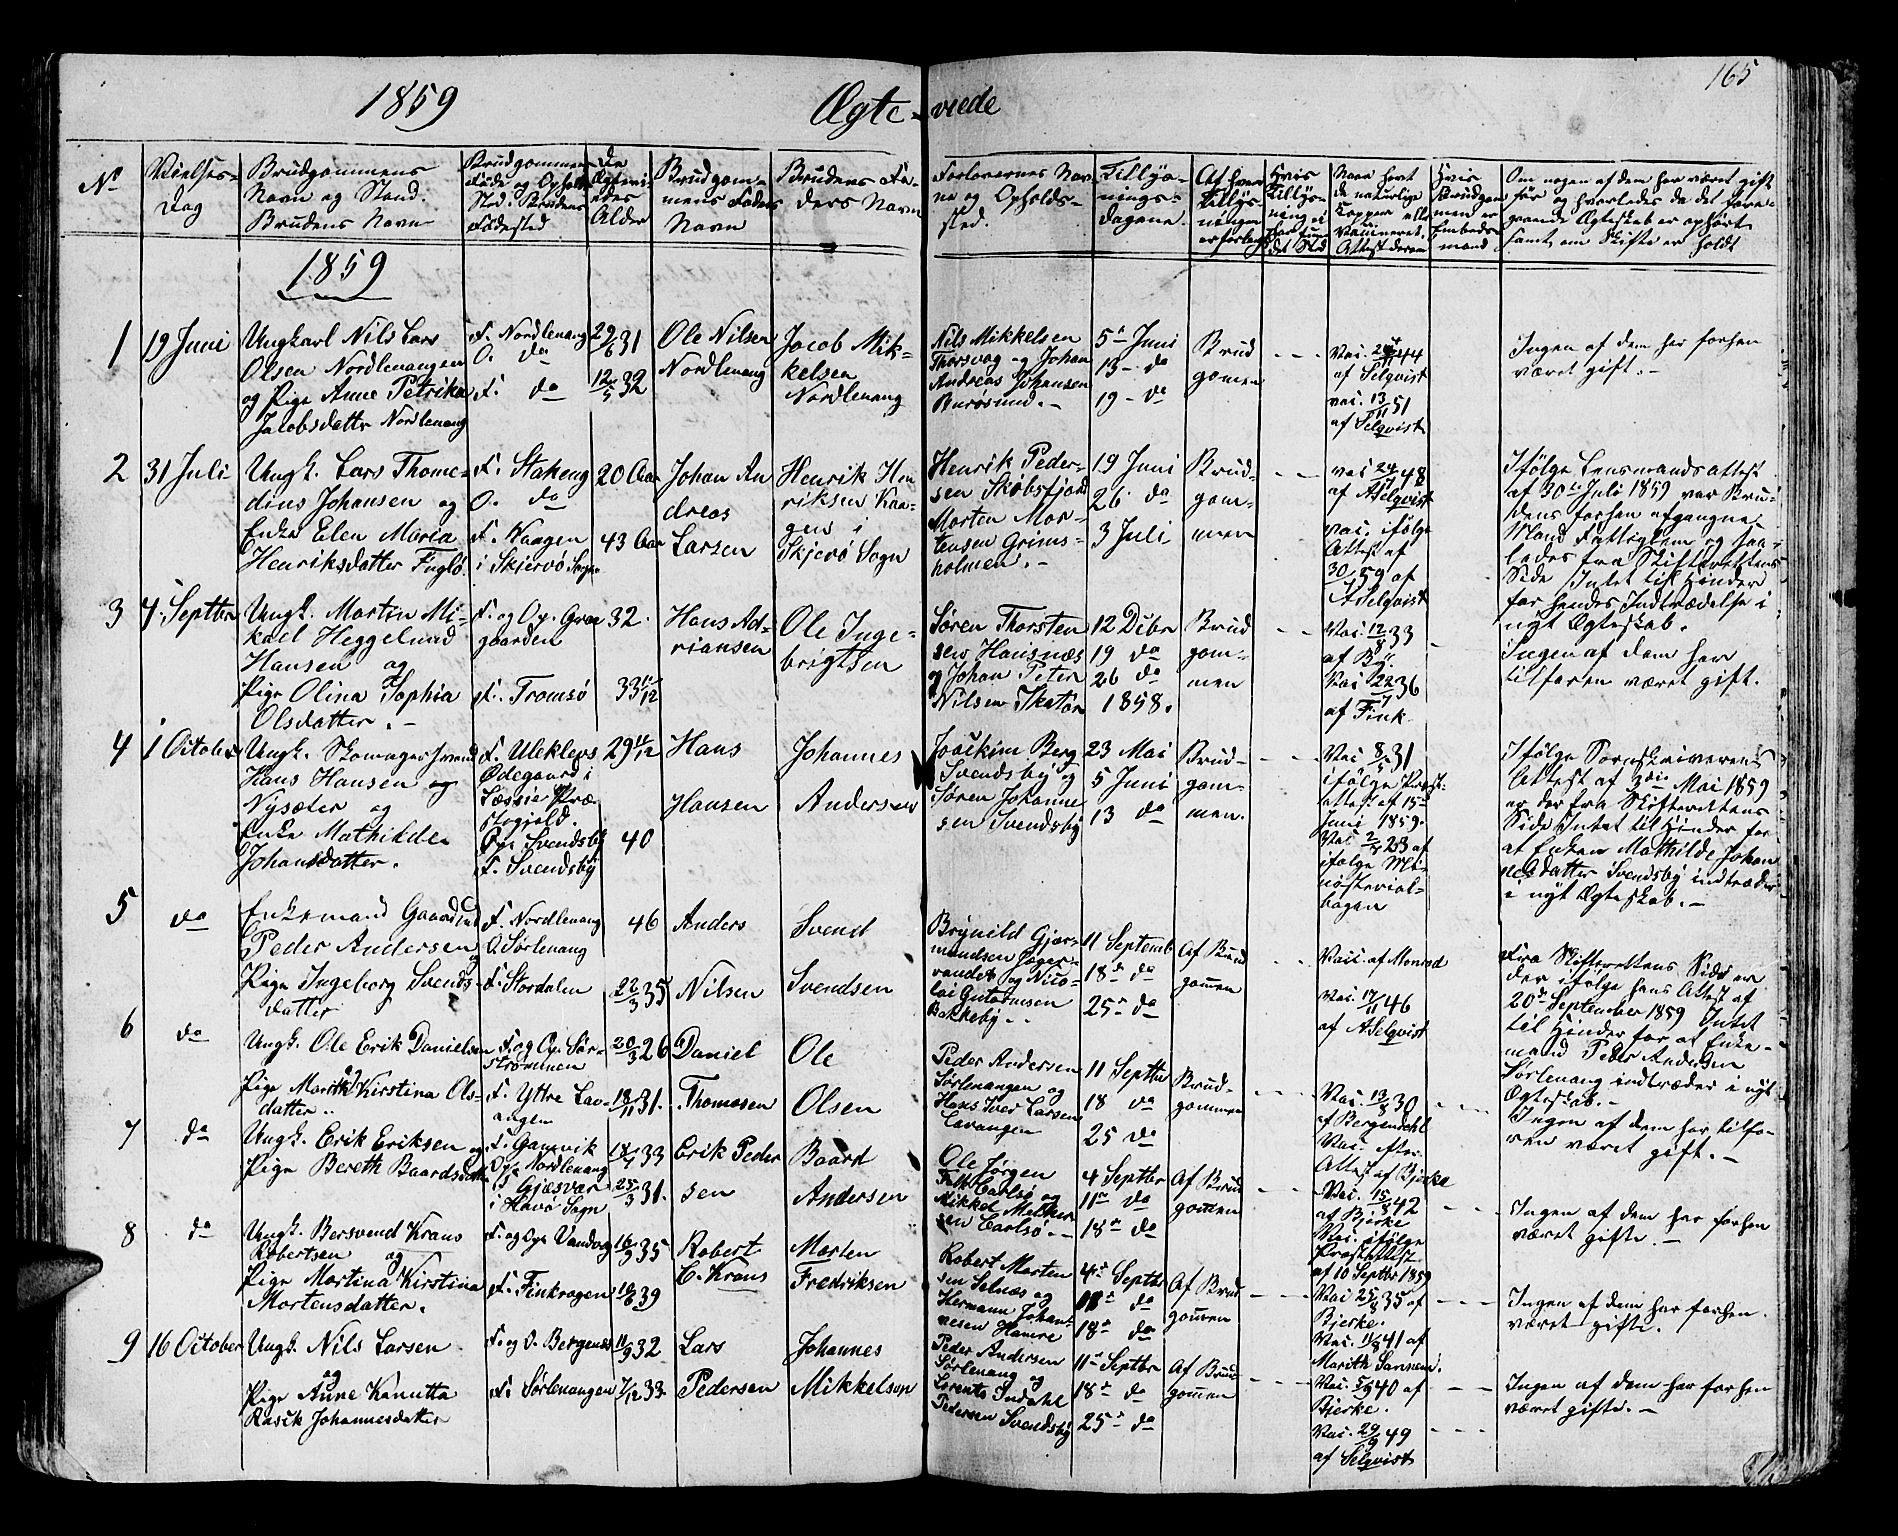 1859 Ægte-viede 165
No
Vielses-
Dag
Brudgommens
Navn og Stand.
Brudens Navn
Brudgommens
Føde og Opholds
Sted. Brudens
Fødested
De
Ægtevi-
edes
Alder
Brudgom-
mens Faders
Navn
Brudens Fa-
ders Navn
Forlovernes Nav-
ne og Opholds-
sted.
Tillys-
nings-
dagene.
Af hvem
Tillys-
ningen
er forlangt
Hvis
Tillys-
ning ei
har fun-
det Sted
Naar havt
de naturlige
Kopper eller
Vaccineret.
Attest derom
Hvis
Brudgom
men er
Embeds
mand
Om nogen af dem har været gift
før og hvorledes da det fore-
gaaende Ægteskab er ophørt
samt om Skifte er holdt
1859
1
19 Juni
Ungkarl Nils Lars
Olsen Nordlenangen
og Pige Anne Petrika
Jacobsdatter Nordlenang
F. Nordlenang
O. do
F. do
29/6 31
12/5 32
Ole Nilsen
Nordlenang
Jacob Mik-
kelsen
Nordlenang
Nils Mikkelsen
Thorsvag og Johan
Andreas Johansen
Burøsund.-
5te Juni
13- do
19- do
Brud
gomen
Vac. 44
af Selqvist
vac. 13/11 51
af Selqvist
Ingen af dem har forhen
været gift.-
2
31 Juli
Ungk. Lars Thome-
dius Johansen og
Enke Elen Maria
Henriksdatter Fuglø.
F. Stakeng
O. do
F. Kaagen
i Skjervø Sogn
20 Aar
43 Aar
Johan An
dreas
Larsen
Henrik Hen
riksen Kaa-
gen i
Skjervø Sogn
Henrik Peder-
sen Skobsfjord
Morten Mor-
tensen Grims-
holmen.-
19 Juni
26. do
3 Juli
Brud-
gom-
men
vac. 48
af A Selqvist
vac. ifølge
Attest af
59 af
A Selqvist
Ifølge Lensmandsattest
af 30te Juli 1859 var Bru-
dens forhen afgangne
Mand Fattiglem og saa-
ledes fra Skifterettens
Side Intet til Hinder
for hendes Indtrædelse i
nyt Ægteskab.
3
4. Septbr
Ungk. Martin Mi-
kael Heggelund
Hansen og
Pige Olina Sophia
Olsdatter.-
F. og Op. Grøn
gaarden
F. Tromsø
32.
33 11/12
Hans Ad-
riansen
Ole Inge-
brigtsen
Søren Thorsten
sen Hansnæs
og Johan Peter
Nilsen Skatør
12 Decbr
19 do
26 do
1858.
Brud
gom-
men
Vac. 12/8 33
af By.
Vac. 22/7 36
af Fink
Ingen af dem har
tilforen været gift.
4
1 October
Ungk. Skomagersvend
Hans Hansen og
Nysæter og
Enke Mathilde
Johansdatter.
F. Uleklevs
Ødegaard i
Læssie Præ
stegjeld.
Op. Svendsby
F. Svendsby
29 11/12
40
Hans
Hansen
Johannes
Andersen
Joachim Berg
Svendsby og
Søren Johanne
sen Svendsby
23 Mai
5 Juni
13 do
Brud-
gom-
men.
Vac. 8/5 31
ifølge Præst-
attest af 15de
Juni 1859.
Vac. 23 af
ifølge Mi-
nisterial-
bogen
Ifølge Sorenskriverens
Attest af 3die Mai 1859
er der fra Skifterettens
Side Intet til Hinder for
at Enken Mathilde Johan
nesdatter Svendsby indtræder
i nyt Ægteskab.-
5
do
Enkemand Gaardmd
Peder Andersen og
Pige Ingeborg Svends-
datter
F. Nordlenang
O. Sørlenang
F. Stordalen
46
22/3 35
Anders
Nilsen
Svend
Svendsen
Brynild Gjær-
mundsen Jæger-
vandet og Nico-
lai Gutormsen
Bakkeby..
11 Septemb
18de do
25de do
Af Brud
gommen
Vac. af Monrad
Vac. 17/11 46
af A Selqvist
Fra Skifterettens Side er
der ifølge hans Attest af
20de September 1859 Intet
til Hinder for at Enke-
mand Peder Andersen
Sørlenang indtræder i nyt
Ægteskab.-
6
do
Ungk. Ole Erik Danielsen
og
Pige Marith Kirstina Ols-
datter..
F. og Op. Sør-
strømmen
F. Yttre Lav-
angen
20/3 26
18/11 31.
Daniel
Thomasen
Ole
Olsen
Peder Andersen
Sørlenangen og
Hans Iver Larsen
Lavangen
11 Septbr
18 do
25 do
Brud-
gommen
Vac. 13/8 30
af Bergendahl
Vac. efter
Attest af Bjerke
Ingen af dem har tilfo-
ren været gift.-
7
do
Ungk. Erik Eriksen og
Pige Bereth Baardsdatter
F. Gamvik
Op. Nordlenang
F. Gjæsvær
i Havø Sogn
14/7 33
25/3 31.
Erik Peder
sen
Baard
Andersen
Ole Jørgen
Carlsø og
Mikkel Mikkel
sen Carlsø.-
4 Septbr
11te do
18de do
Af Brud
gommen
Vac. 15/8 42
af Bjerke
Vac. ifølge
Præstattest
af 10 Septbr 1859
Ingen af dem har forhen
været gifte.-
8
do
Ungk. Bersvend Krans
Robertsen og
Pige Martina Kirstina
Mortensdatter.
F. og Op. Vandvog
F. Finkrogen
16/9 35
10/6 39
Robert
C. Krans
Morten
Fredriksen
Robert Morten
sen Selnæs og
Hermann Johan-
nesen Hamre
4de Septbr
11te do
18de do
Af Brud
gommen
Vac. 25/8 35 af
Bjerke.
Vac. 11/8 41 af
Marith Sannem.
Ingen af dem har forhen
været gifte.
9
16 October
Ungk. Nils Larsen
og
Pige Anne Kanutta
Rasik Johannesdatter
F. og O. Bergenes
F. Sørlenangen
11/9 32
7/12 33
Lars
Pedersen
Johannes
Mikkelsen
Peder Andersen
Sørlenang og
Lorents Indahl
Pedersen Svendsby
11te Septbr
18de do
25de do
Af Brud
gommen
Vac. 5/9 40 af
Bjerke.
Vac. 29/9 49
af Selqvist
Ingen af dem har forhen
været gifte.-